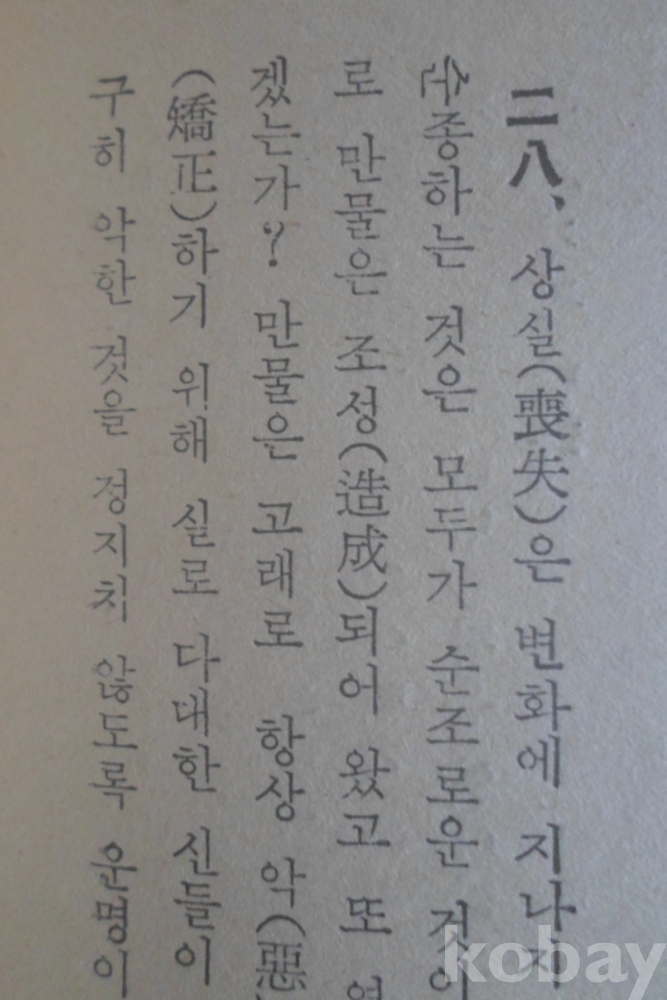 二八、 상실(喪失)은 변화에 지나지
순종하는 것은 모두가 순조로운 것이
로 만물은 조성(造成)되어 왔고 또
겠는가? 만물은 고래로 항상 악(惡
(矯正)하기 위해 실로 다대한 신들이
구히 악한 것을 정지치 않도록 운명이
kobay